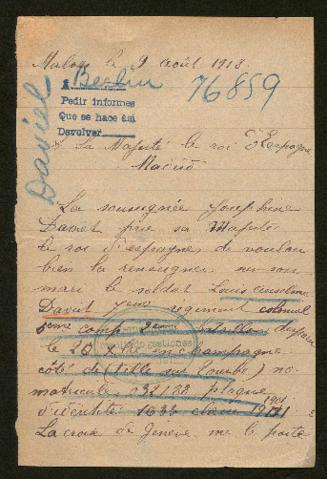 le 9 Août 1918.
Berlin
76859
Pedir informes
Que se hace así
Devolver
Daviel
A Sa Majesté le roi d'Espagne
Madrid
La soussignée Josephine
prie sa Majesté
le roi d'espagne de vouloir
bien la renseigner sur son
mari le soldat Louis
regiment colonial
5eme comp bataillon disparu
le en champagne
côté de (Ville sur tourbe) no
matricule plaque
d'identité 1633 classe 1901
La croix de Genève me le porte